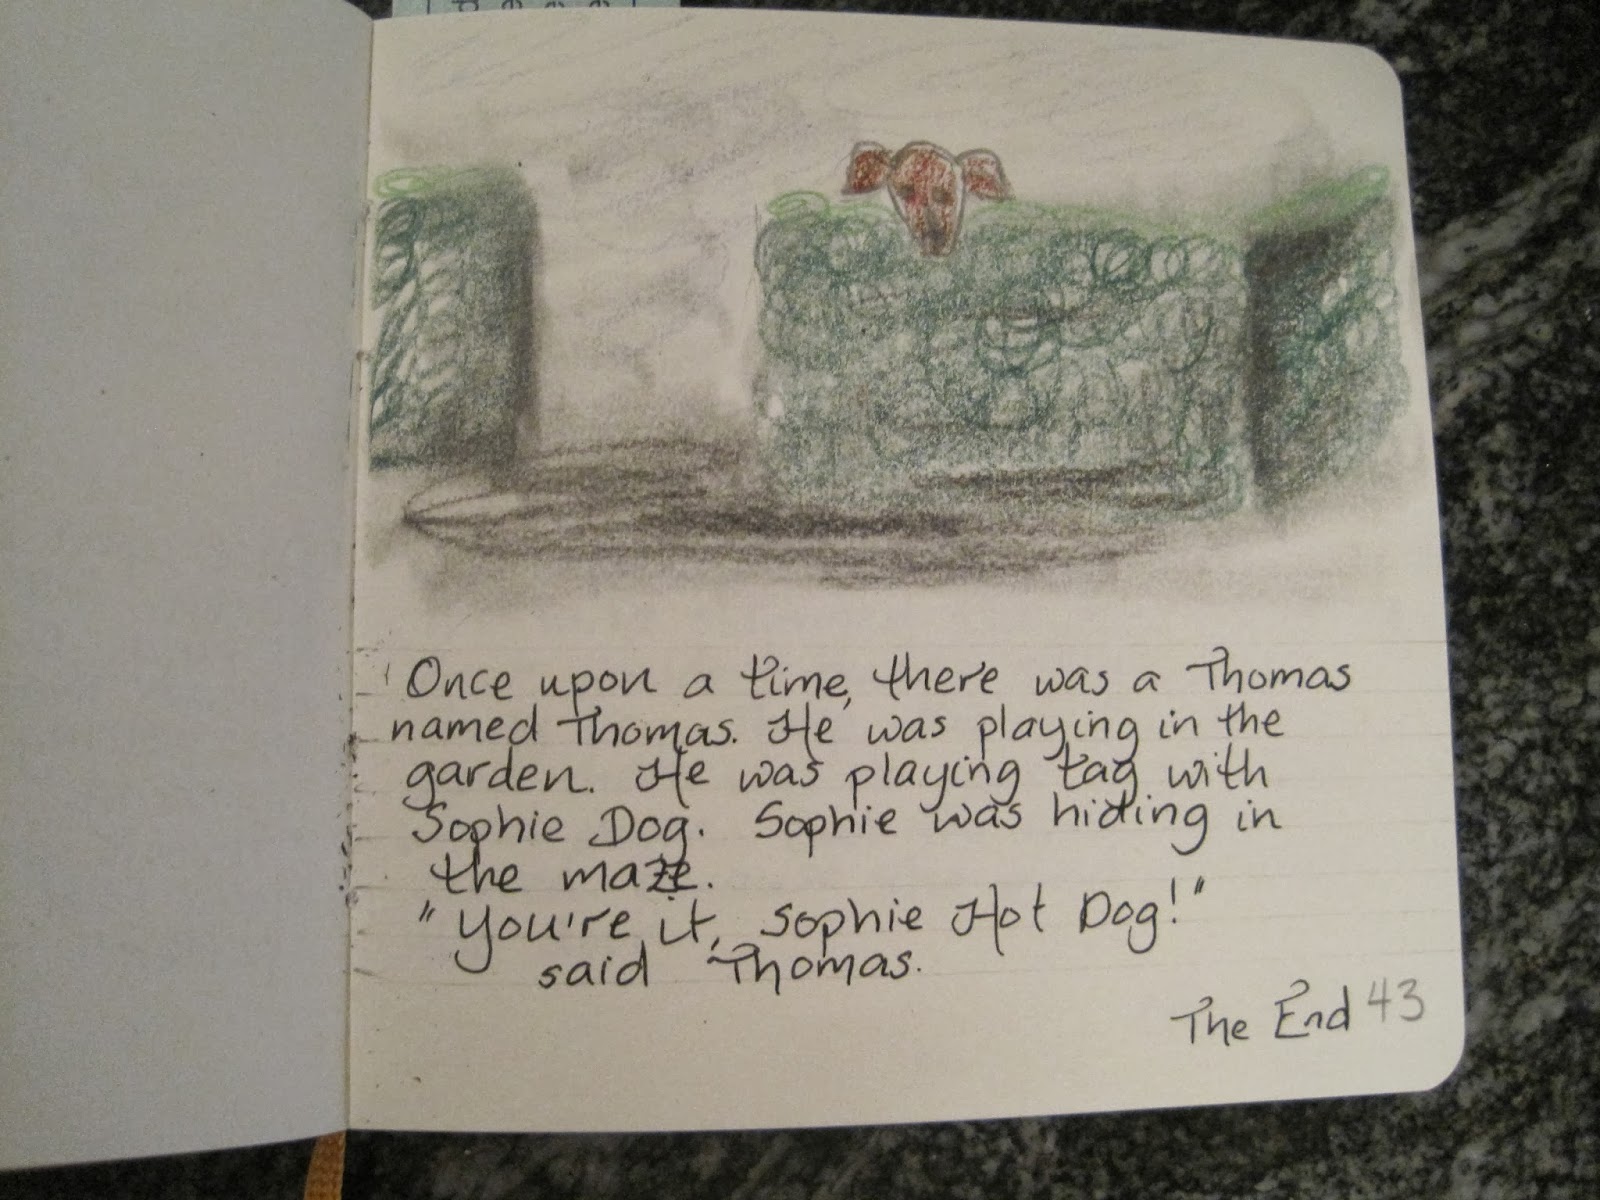 Once upon a time, there was a Thomas
named Thomas. He was playing in the
garden. He was playing tag with
Sophie Dog. Sophie was hiding in
the maze.
"You're it, Sophie Hot Dog!"
said Thomas.
The End 43